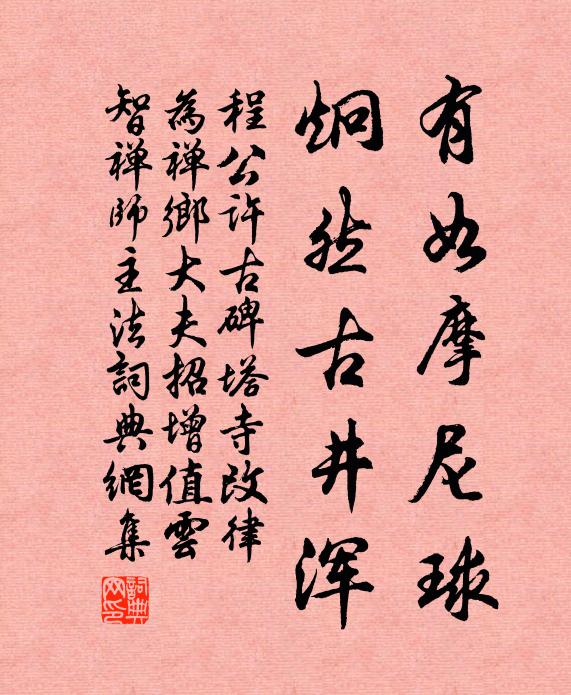 有如摩尼球
炯然古井浑
程公許古碑塔寺改律
為禅鄉大夫招增值雲
智禅師主法詞典網集
詞典網印